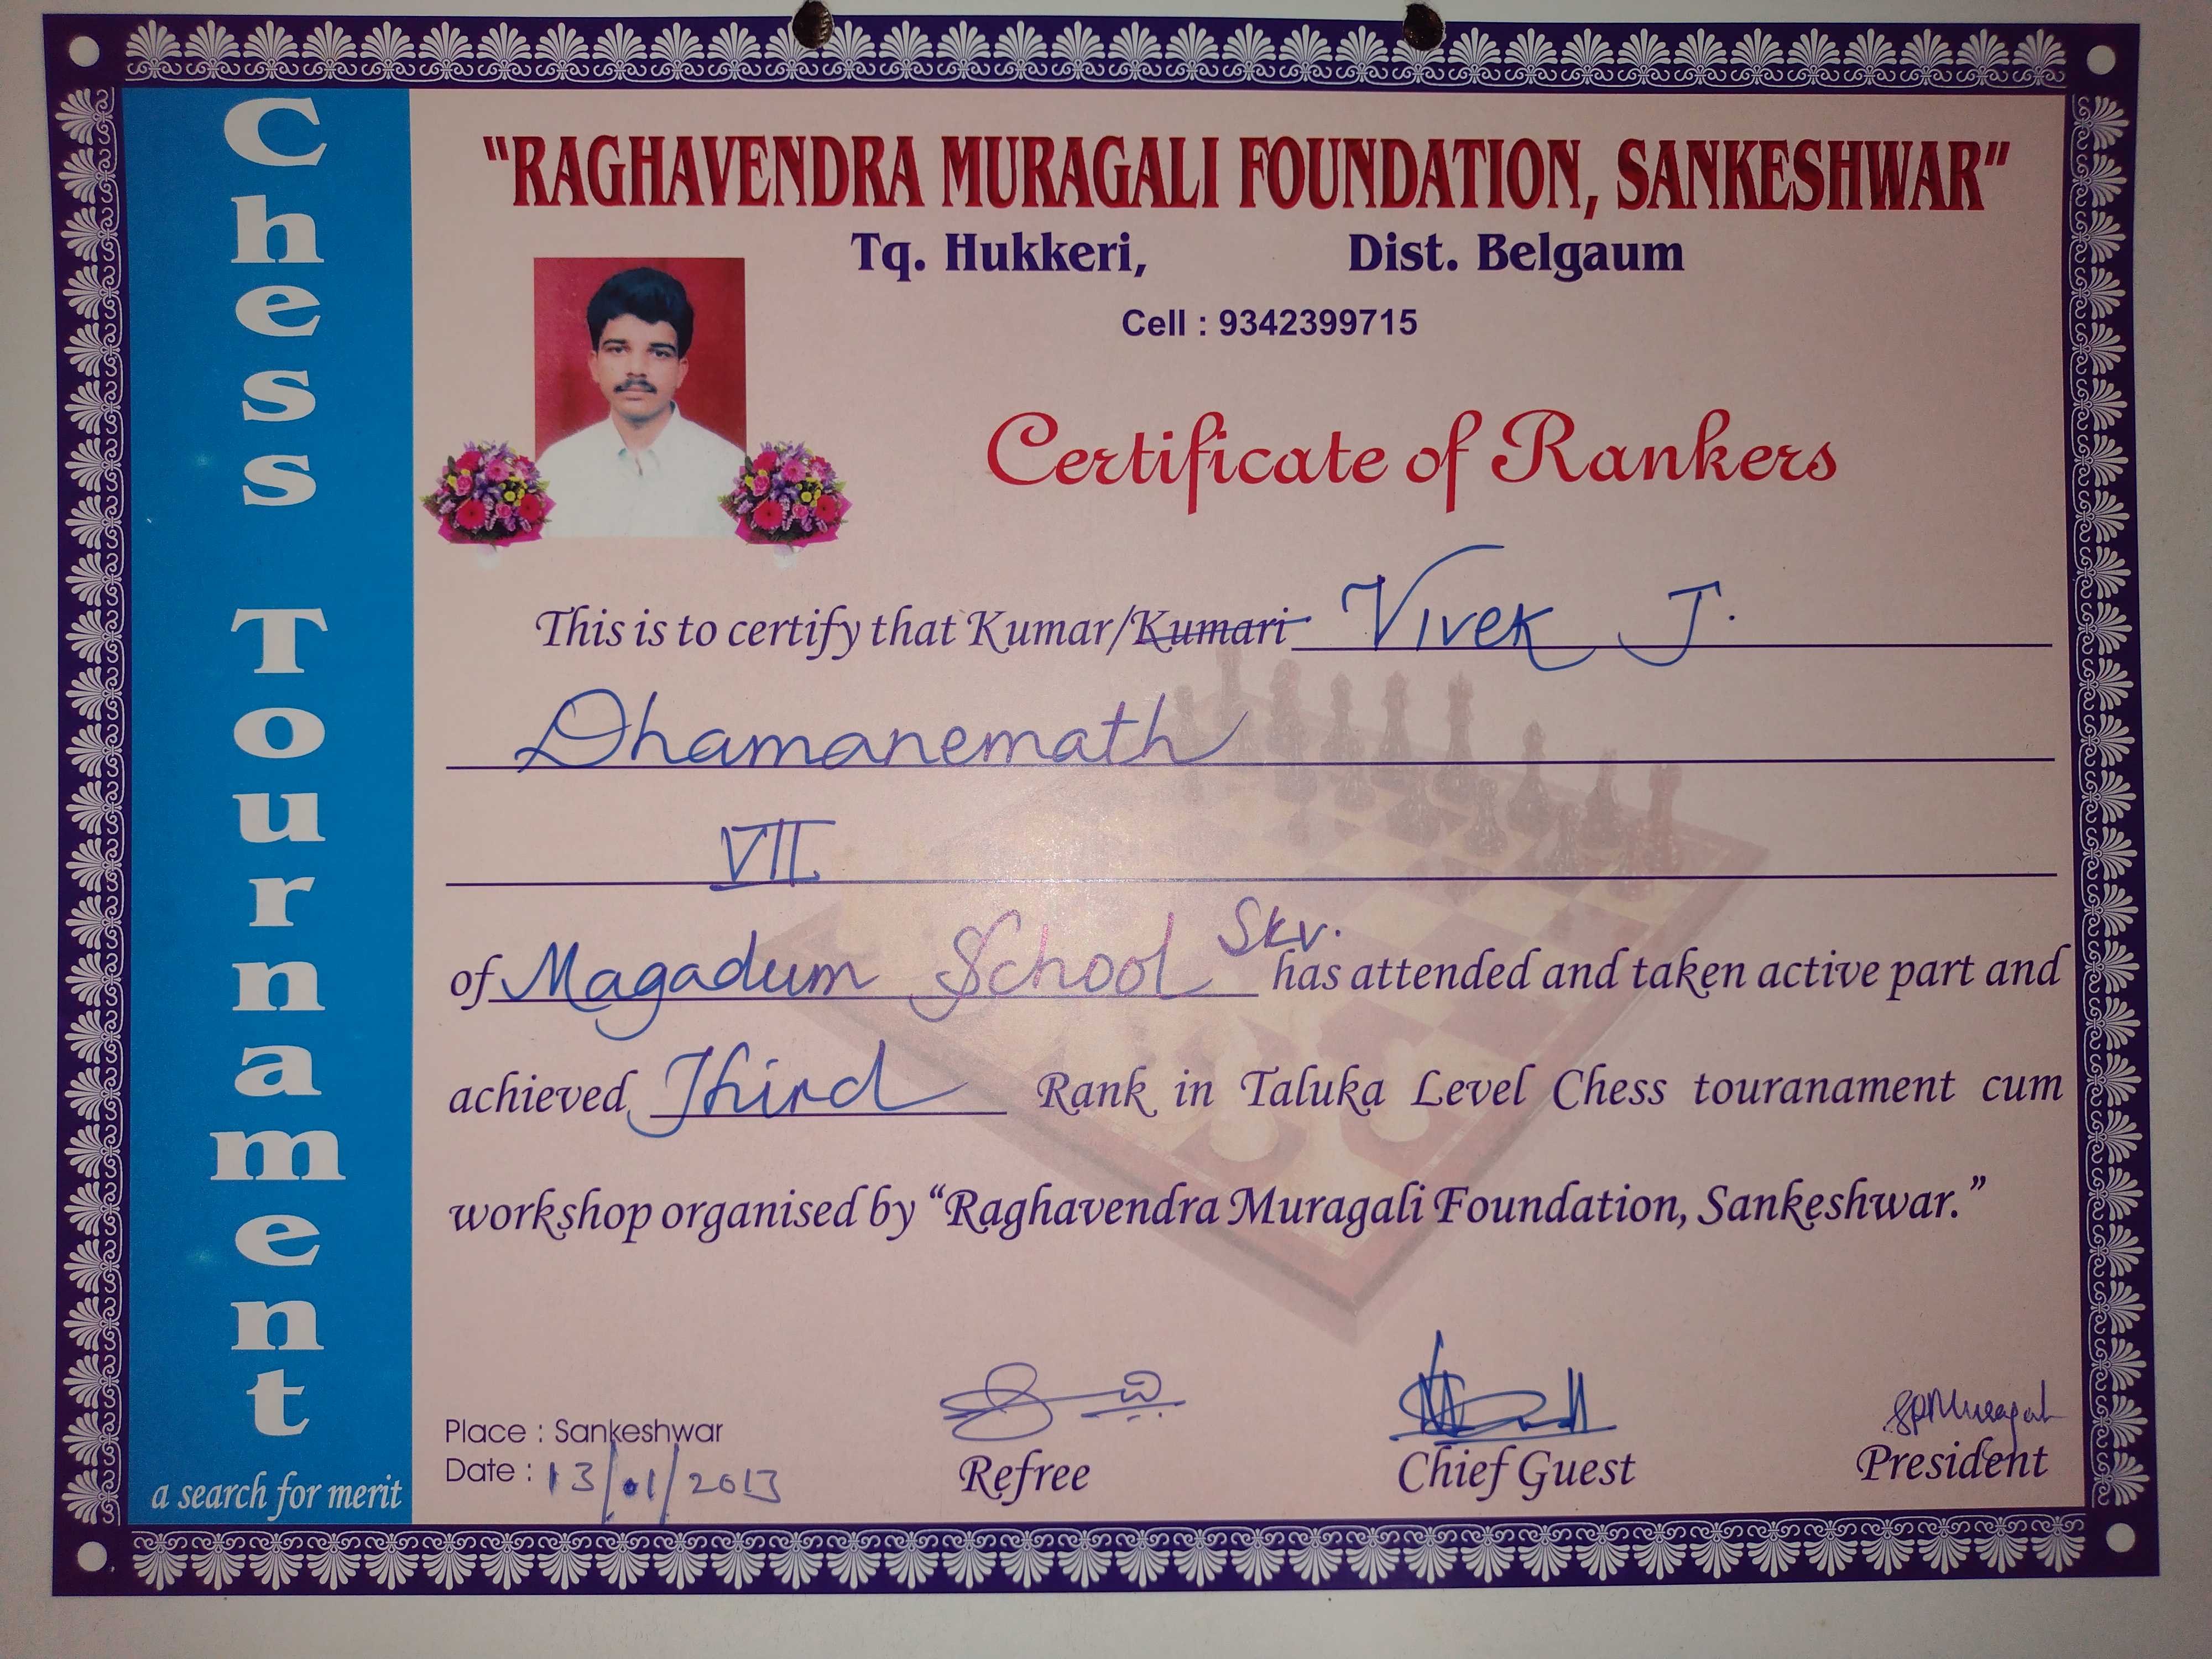 Chess Tournament
a search for merit
"RAGHAVENDRA MURAGALI FOUNDATION, SANKESHWAR"
Tq. Hukkeri, Dist. Belgaum
Cell : 9342399715
Certificate of Rankers
This is to certify that Kumar/Kumari Vivek J.
Dhamanemath
VII
of Magadum School Skv. has attended and taken active part and
achieved Third Rank in Taluka Level Chess touranament cum
workshop organised by "Raghavendra Muragali Foundation, Sankeshwar."
Place : Sankeshwar
Date : 13/01/2013
Refree
Chief Guest
SPMuragali
President